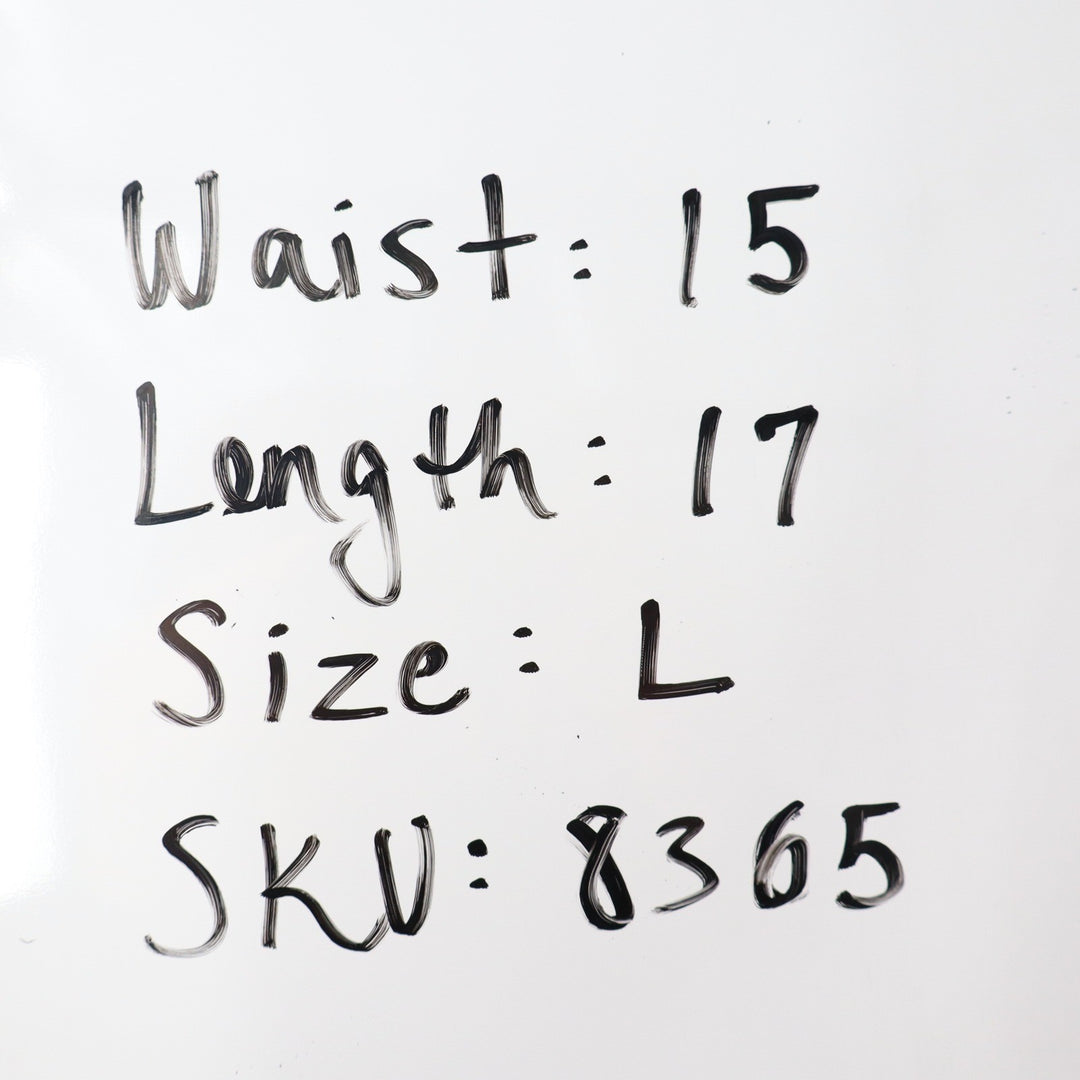 Waist: 15
Length: 17
Size: L
SKU: 8365